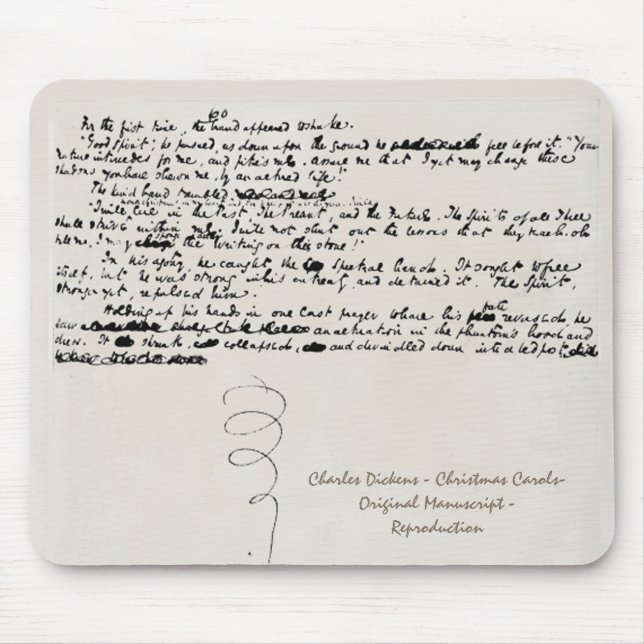 60
For the first time, the hand appeared to shake.
"Good Spirit," he pursued, as down upon the ground he fell before it. "Your
nature intercedes for me, and pities me. Assure me that I yet may change these
shadows you have shewn me, by an altered life!"
The kind hand trembled
"I will honor Christmas in my heart, and try to keep it all the year.
I will live in the Past, the Present, and the Future. The Spirits of all Three
shall strive within me. I will not shut out the lessons that they teach. Oh
tell me I may sponge away the writing on this stone!"
In his agony, he caught the spectral hand. It sought to free
itself, but he was strong in his entreaty, and detained it. The Spirit,
stronger yet, repulsed him.
Holding up his hands in one last prayer to have his fate reversed, he
saw an alteration in the phantom's hood and
dress. It shrunk, collapsed, and dwindled down into a bedpost.
Charles Dickens - Christmas Carols-
Original Manuscript -
Reproduction